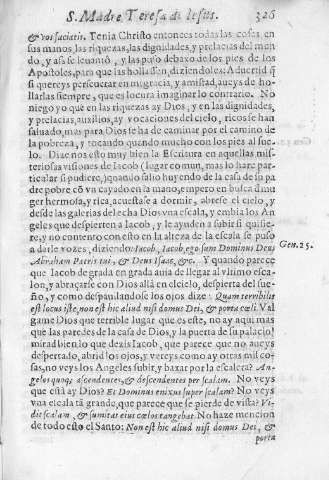 S. Madre Teresa de Iesus. 326
& vos saciatis. Tenia Christo entonces todas las cosas en
sus manos, las riquezas, las dignidades, y prelacias del mun
do, y assi se leuantò, y las puso debaxo de los pies de los
Apostoles, para que las hollassen, diziendoles: Aduertid q̃
si quereys perseuerar en mi gracia, y amistad, aueys de ho-
llarlas siempre, que es locura imaginar lo contrario. No
niego yo que en las riquezas ay Dios, y en las dignidades,
y prelacias, auxilios, ay vocaciones del cielo, ricos se han
saluado, mas para Dios se ha de caminar por el camino de
la pobreza, y tocando quando mucho con los pies al sue-
lo. Dize nos esto muy bien la Escritura en aquellas mis-
teriosas visiones de Iacob (lugar comun, mas lo harè par-
ticular si pudiere,) quando salio huyendo de la casa de su pa
dre pobre cõ vn cayado en la mano, empero en busca d mu
ger hermosa, y rica, acuestase a dormir, abrese el cielo, y
desde las galerias del echa Dios vna escala, y embia los An
geles que despierten a Iacob, y le ayuden a subir si quisie-
re, y no contento con esto en la alteza de la escala se puso
a darle vozes, diziendo: Iacob, Iacob, ego sum Dominus Deus
Abraham Patris tui, & Deus Isaac, &c. Y quando parece
Gen. 25.
que Iacob de grada en grada auia de llegar al vltimo esca-
lon, y abraçarse con Dios allà en el cielo, despierta del sue-
ño, y como despauilandose los ojos dize: Quam terribilis
est locus iste, non est hic aliud nisi domus Dei, & porta cœli. Val
game Dios que terrible lugar que es este, no ay aqui mas
que las paredes de la casa de Dios, y la puerta de su palacio,
mirad bien lo que dezis Iacob, que parece que no aueys
despertado, abrid los ojos, y vereys como ay otras mil co-
sas, no veys los Angeles subir, y baxar por la escalera? An-
gelos quoq; ascendentes, & descendentes per scalam. No veys
que està ay Dios? Et Dominus enixus super scalam? No veys
vna escala tã grande, que parece que se pierde de vista? Vi-
dit scalam, & sumitas eius cœlos tangebat. No haze mencion
de todo esto el Santo: Non est hic aliud nisi domus Dei, &
porta